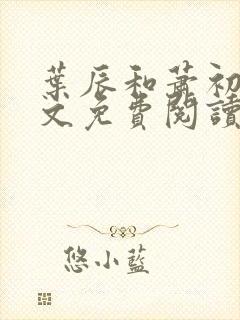 葉辰和蕭初
文免費閱讀
悠小藍